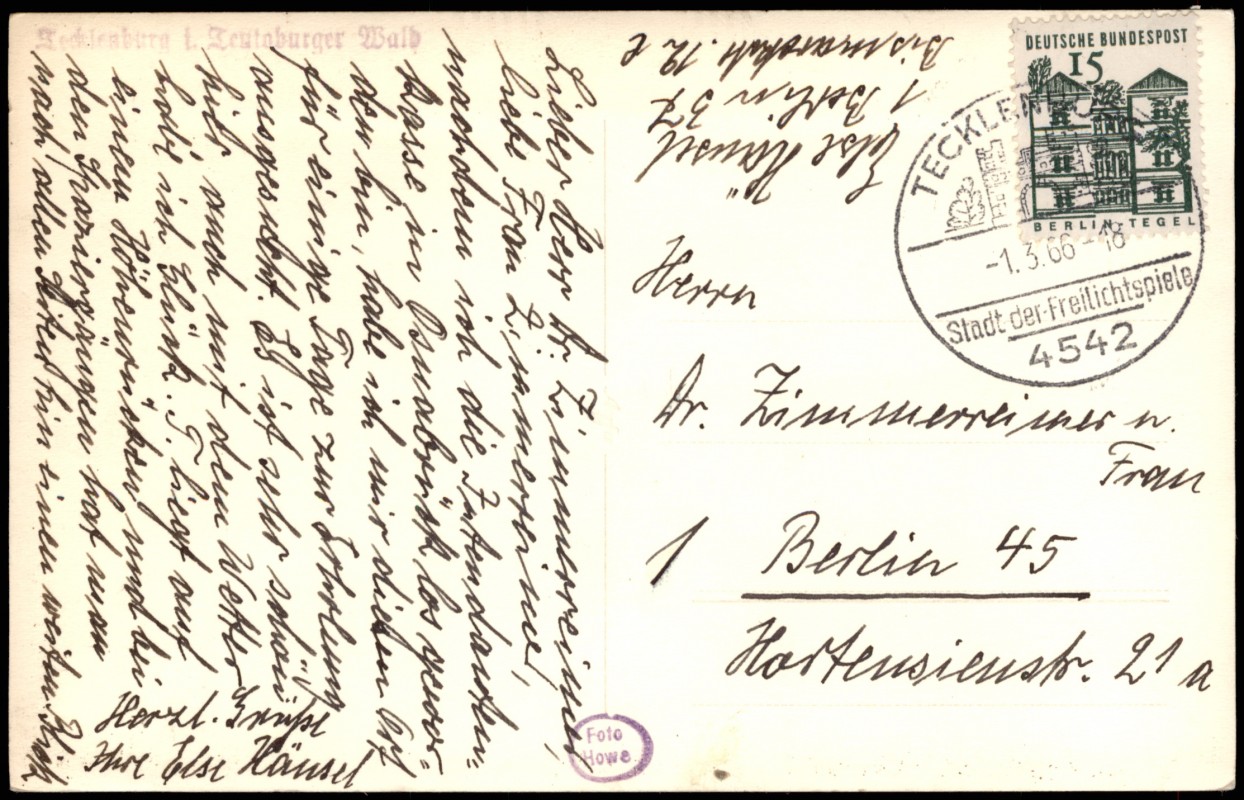 Tecklenburg i. Teutoburger Wald
Lieber Herr Dr. Zimmerreimer,
liebe Frau Zimmerreimer,
nachdem ich die Intendanten=
kasse in Osnabrück los gewor=
den bin, habe ich mir diesen Ort
für einige Tage zur Erholung
ausgesucht. Es ist sehr schön
hier, auch mit dem Wetter
habe ich Glück. T. liegt auf
einem Höhenrücken und bei
den Spaziergängen hat man
nach allen Seiten hin einen weiten Blick
Herzl. Grüße
Ihre Else Hänsel
Else Hänsel
1 Berlin 37
Bismarckstr. 12 c
DEUTSCHE BUNDESPOST
15
BERLIN-TEGEL
TECKLENBURG
-1.3.66-18
Stadt der Freilichtspiele
4542
Herrn
Dr. Zimmerreimer u.
Frau
1 Berlin 45
Hortensienstr. 21 a
Foto
Howe